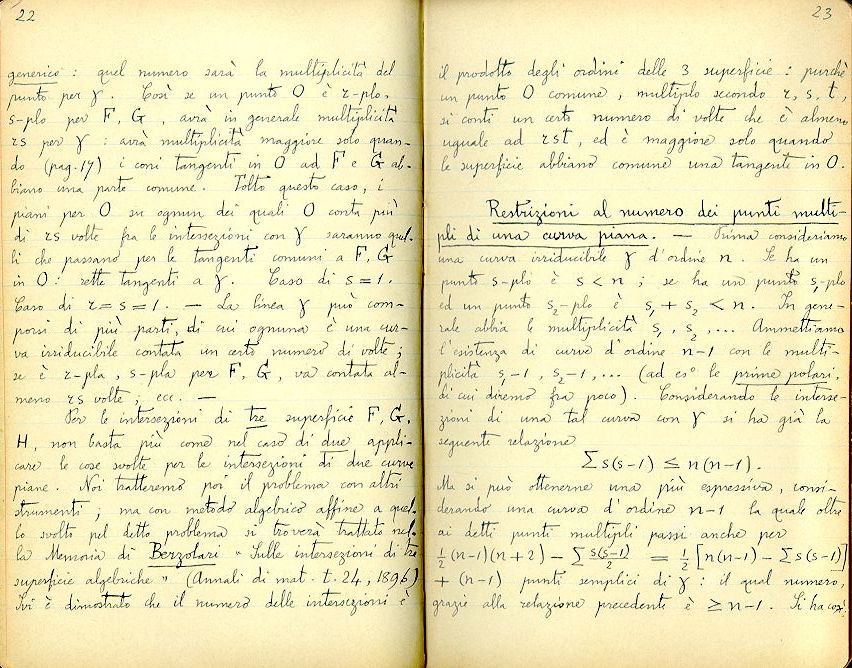 22
generico : quel numero sarà la multiplicità del
punto per γ. Così se un punto O è r-plo,
s-plo per F, G, avrà in generale multiplicità
rs per γ : avrà multiplicità maggiore solo quan-
do (pag. 17) i coni tangenti in O ad F e G ab-
biano una parte comune. Tolto questo caso, i
piani per O su ognun dei quali O conta più
di rs volte fra le intersezioni con γ saranno quel-
li che passano per le tangenti comuni a F, G
in O : rette tangenti a γ. Caso di s = 1.
Caso di r = s = 1. — La linea γ può com-
porsi di più parti, di cui ognuna è una cur-
va irriducibile contata un certo numero di volte ;
se è r-pla, s-pla per F, G, va contata al-
meno rs volte ; ecc. —
Per le intersezioni di tre superficie F, G,
H, non basta più come nel caso di due appli-
care le cose svolte per le intersezioni di due curve
piane. Noi tratteremo poi il problema con altri
strumenti ; ma con metodo algebrico affine a quel-
lo svolto pel detto problema si troverà trattato nel-
la Memoria di Berzolari "Sulle intersezioni di tre
superficie algebriche" (Annali di mat. t. 24, 1896)
Ivi è dimostrato che il numero delle intersezioni è
23
il prodotto degli ordini delle 3 superficie : purchè
un punto O comune, multiplo secondo r, s, t,
si conti un certo numero di volte che è almeno
uguale ad rst, ed è maggiore solo quando
le superficie abbiano comune una tangente in O.
Restrizioni al numero dei punti multi-
pli di una curva piana. — Prima consideriamo
una curva irriducibile γ d'ordine n. Se ha un
punto s-plo è s < n ; se ha un punto s₁-plo
ed un punto s₂-plo è s₁ + s₂ < n. In gene-
rale abbia le multiplicità s₁, s₂, ... Ammettiamo
l'esistenza di curve d'ordine n-1 con le multi-
plicità s₁-1, s₂-1, ... (ad es° le prime polari,
di cui diremo fra poco). Considerando le interse-
zioni di una tal curva con γ si ha già la
seguente relazione
∑ s(s-1) ≤ n(n-1).
Ma si può ottenerne una più espressiva, consi-
derando una curva d'ordine n-1 la quale oltre
ai detti punti multipli passi anche per
½ (n-1)(n+2) - ∑ s(s-1)/2 = ½ [n(n-1) - ∑ s(s-1)]
+ (n-1) punti semplici di γ : il qual numero,
grazie alla relazione precedente è ≥ n-1. Si ha così: